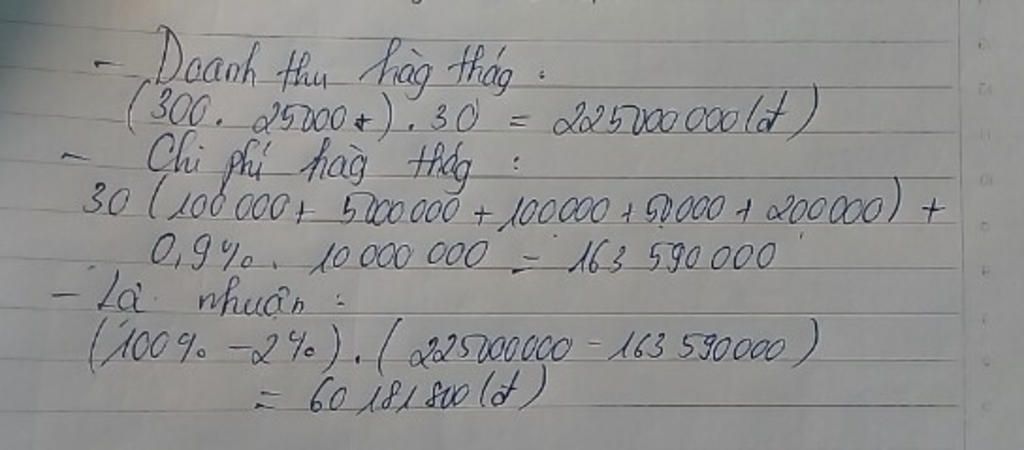 - Doanh thu hàg thág :
(300. 25000 +) . 30 = 225000000 (đ)
- Chi phí hàg thág :
30 (100 000 + 5000000 + 100000 + 50000 + 200000) +
0,9% . 10 000 000 = 163 590 000
- Là nhuận :
(100% - 2%) . ( 225000000 - 163 590000 )
= 60 181 800 (đ)